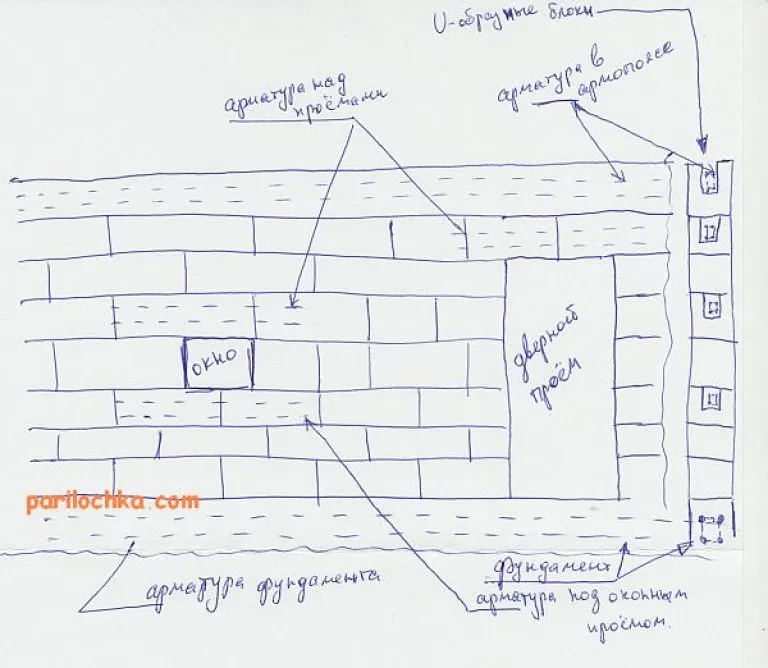 U-образные блоки
арматура над
проёмами
арматура в
армопоясе
окно
дверной
проём
parilochka.com
арматура фундамента
фундамент
арматура под оконным
проёмом.